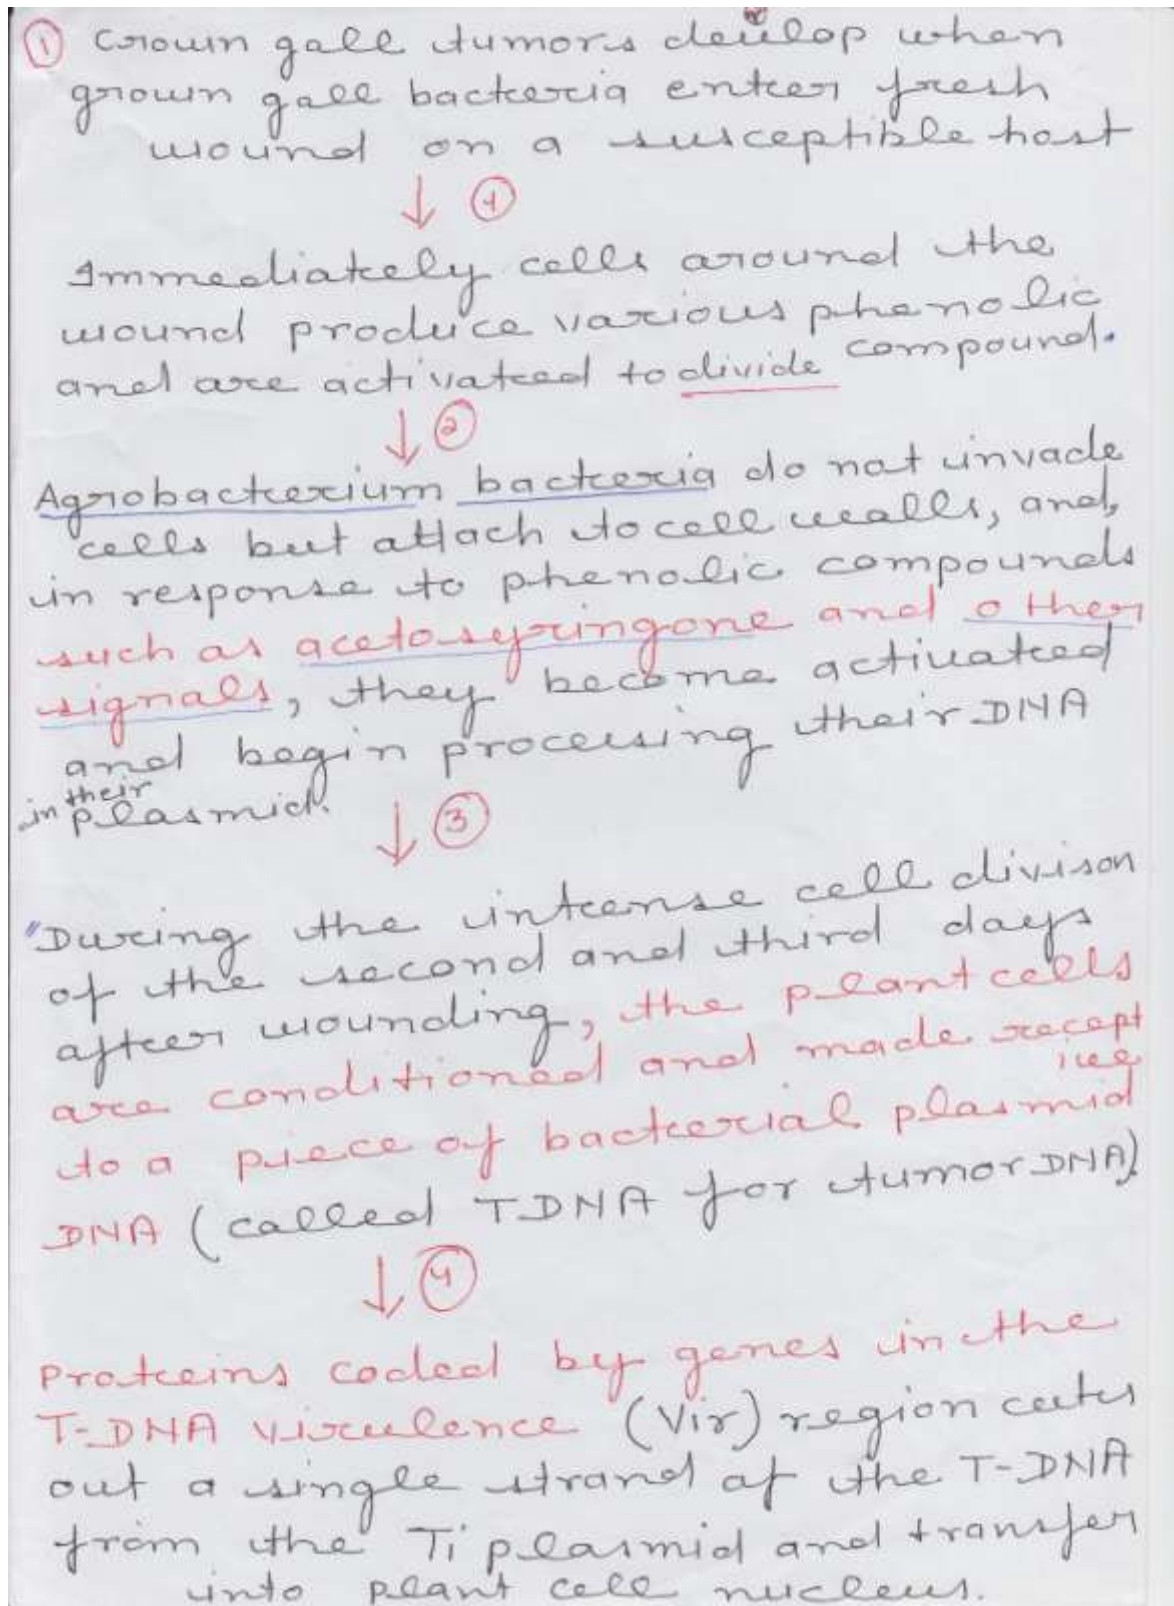 ① Crown gall tumors develop when
grown gall bacteria enter fresh
wound on a susceptible host
↓ ①
Immediately cells around the
wound produce various phenolic
and are activated to divide compound.
↓ ②
Agrobacterium bacteria do not invade
cells but attach to cell walls, and,
in response to phenolic compounds
such as acetosyringone and other
signals, they become activated
and begin processing their DNA
in their plasmid.
↓ ③
"During the intense cell divison
of the second and third days
after wounding, the plant cells
are conditioned and made recept
ive
to a piece of bacterial plasmid
DNA (called TDNA for tumor DNA)
↓ ④
Proteins coded by genes in the
T-DNA virulence (Vir) region cuts
out a single strand of the T-DNA
from the Ti plasmid and transfer
into plant cell nucleus.